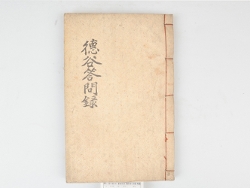 德谷答問録